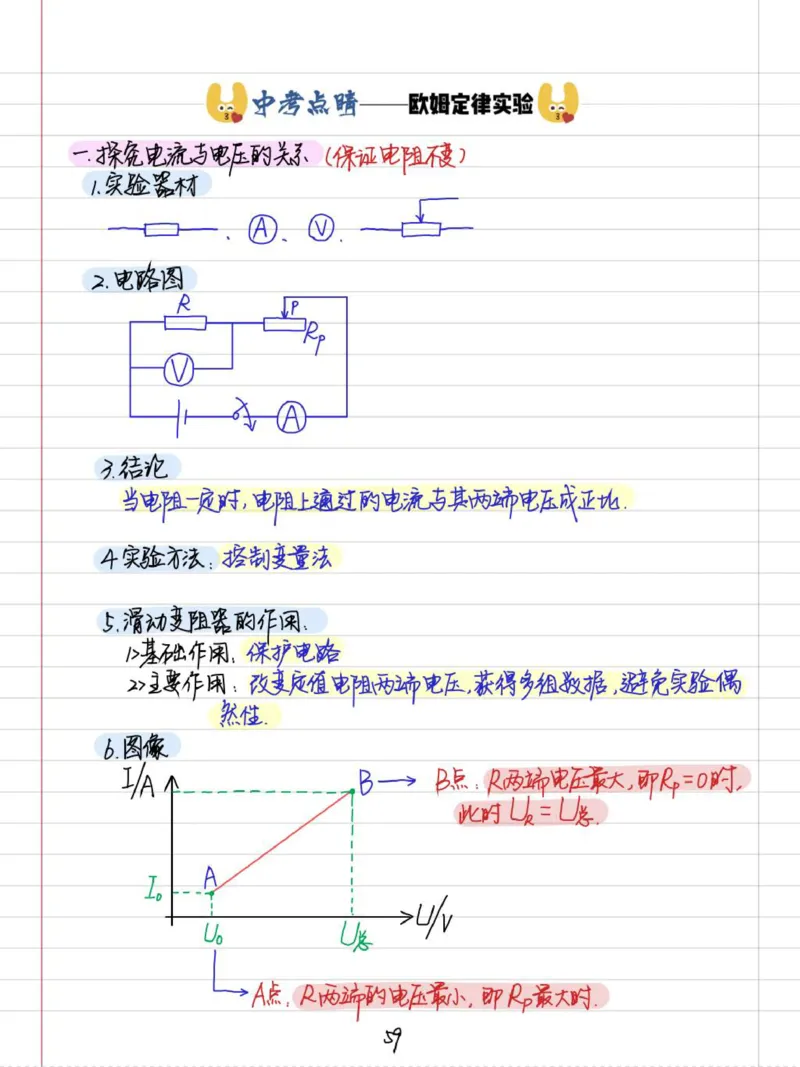 中考点睛——欧姆定律实验
一.探究电流与电压的关系 (保证电阻不变)
1.实验器材
A V
2.电路图
R P
Rp
V
A
3.结论
当电阻一定时,电阻上通过的电流与其两端电压成正比.
4.实验方法:控制变量法
5.滑动变阻器的作用:
1>基础作用:保护电路
2>主要作用:改变定值电阻两端电压,获得多组数据,避免实验偶
然性.
6.图像
I/A B B点:R两端电压最大,即Rp=0时,
此时UR=U总.
A
I0
U/V
U0 U总
A点:R两端的电压最小,即Rp最大时.
59